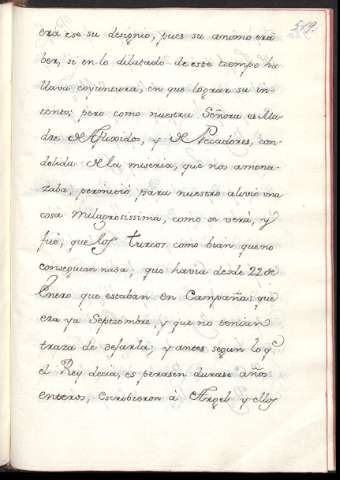 519.
era ese su designio, pues su animo era
ber, si en lo dilatado de este tiempo ha
llava coyuntura, en que lograr su in-
tento; pero como nuestra Señora es Ma
dre de Afluxidos, y de Pecadores, con-
dolida de la miseria, que nos amena-
zaba, permitió para nuestro alivio una
cosa Milagrosissima, como se verá, y
fuè, que los Turcos como bian que no
conseguian nada, que havia desde 22 de
Enero que estaban en Campaña, que
era ya Septiembre, y que no tenian
traza de dejarla, y antes segun lo q.
el Rey decia, esperasen durase años
enteros, escribieron à Argel, y ellos